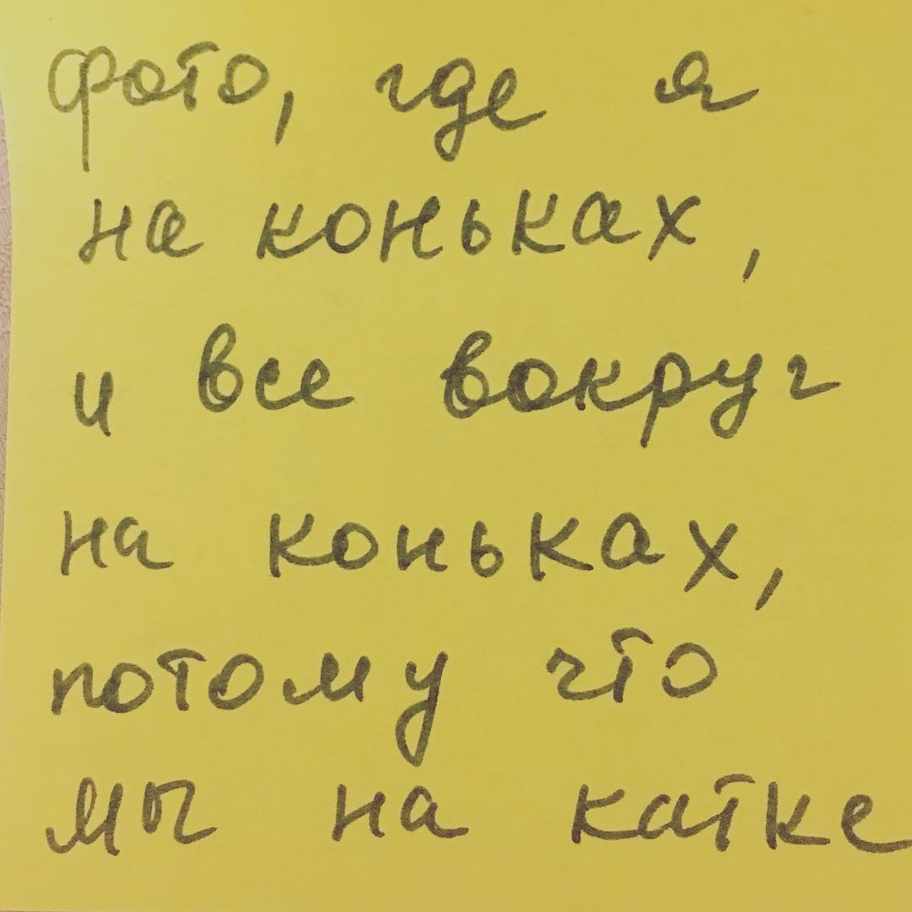 фото, где я
на коньках,
и все вокруг
на коньках,
потому что
мы на катке